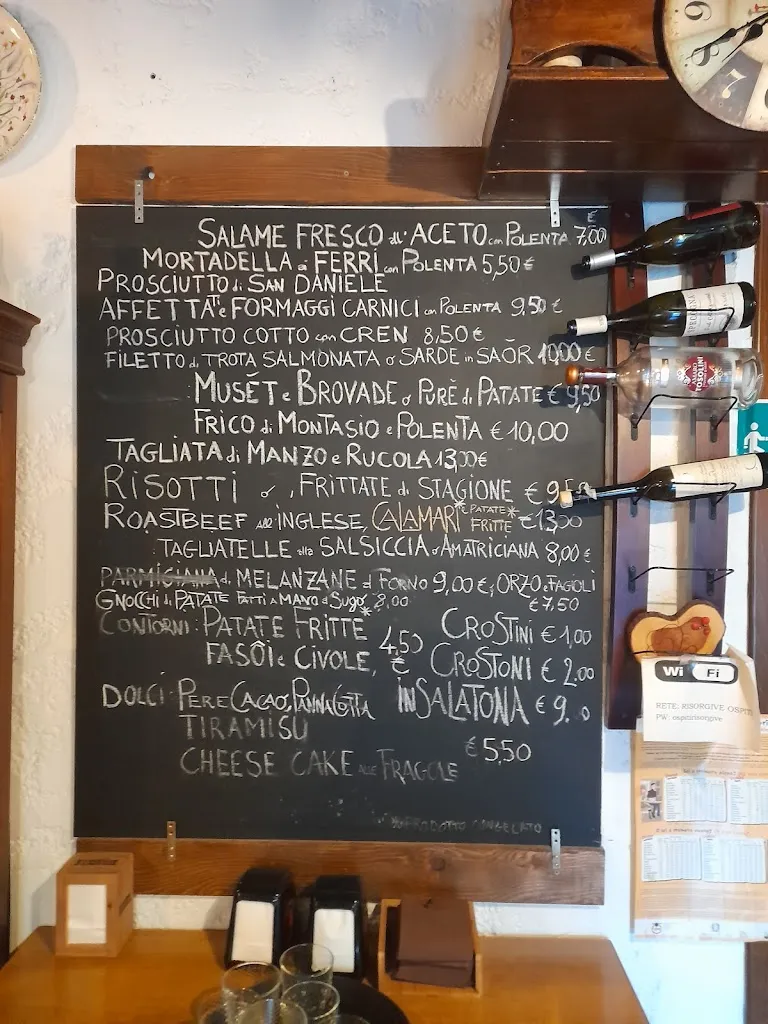 €
SALAME FRESCO all'ACETO con POLENTA 7,00
MORTADELLA ai FERRI con POLENTA 5,50 €
PROSCIUTTO di SAN DANIELE
AFFETTATI e FORMAGGI CARNICI con POLENTA 9,50 €
PROSCIUTTO COTTO con CREN 8,50 €
FILETTO di TROTA SALMONATA o SARDE in SAÔR 10,00 €
MUSÉT e BROVADE o PURÈ di PATATE € 9,50
FRICO di MONTASIO e POLENTA € 10,00
TAGLIATA di MANZO e RUCOLA 13,00 €
RISOTTI o FRITTATE di STAGIONE € 9,50
ROASTBEEF all'INGLESE, CALAMARI* e PATATE* FRITTE € 13,50
TAGLIATELLE alla SALSICCIA o AMATRICIANA 8,00 €
PARMIGIANA di MELANZANE al FORNO 9,00 €, ORZO e FAGIOLI
€ 7,50
GNOCCHI di PATATE FATTI A MANO al SUGO 8,00
CONTORNI: PATATE FRITTE*
4,50
€
FASÔI e CIVOLE,
CROSTINI € 1,00
CROSTONI € 2,00
DOLCI: PERE CACAO, PANNA COTTA
TIRAMISU
CHEESE CAKE ALLE FRAGOLE
INSALATONA € 9.
€ 5,50
PRODOTTO CONGELATO
9
7
TOSOLINI
Wi Fi
RETE: RISORGIVE OSPITI
PW: ospitirisorgive